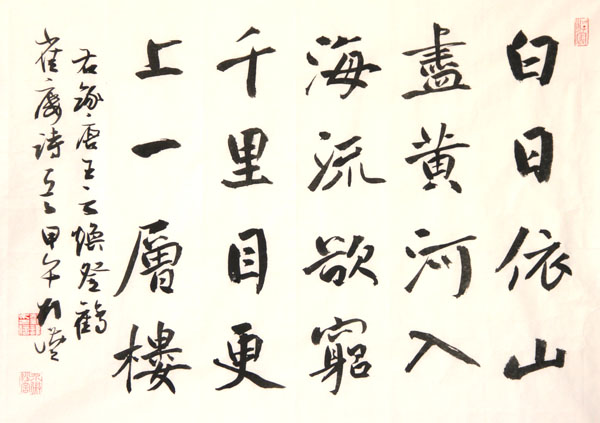 白日依山
盡黄河入
海流欲窮
千里目更
上一層樓
右錄唐王之渙登鸛
雀樓詩 甲午